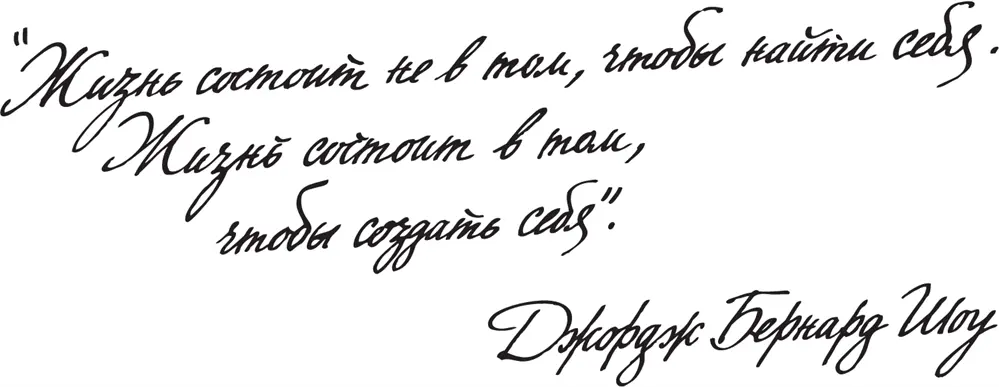 "Жизнь состоит не в том, чтобы найти себя.
Жизнь состоит в том,
чтобы создать себя".
Джордж Бернард Шоу